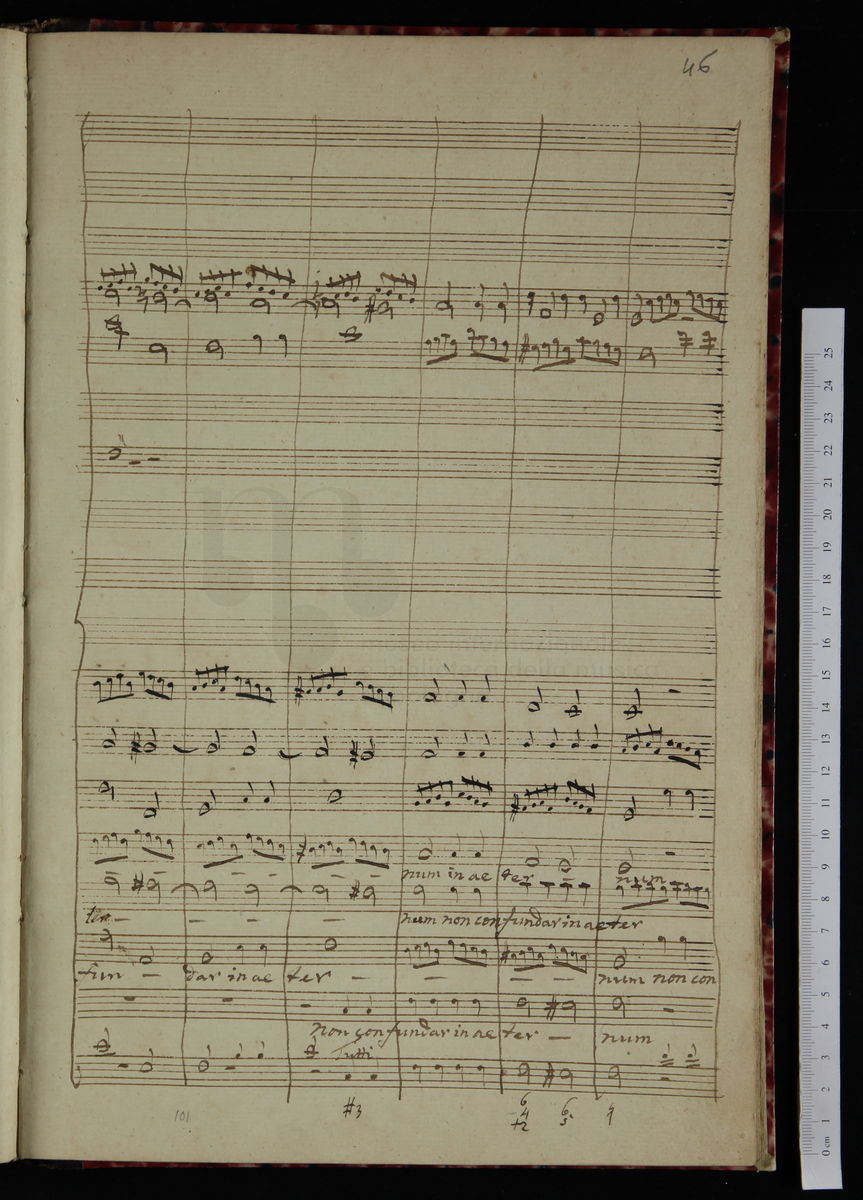 46
num in ae ter num
ter num non confundar in aeter
fun dar in ae ter num non con
non confundar in ae ter num
Tutti
#3 6 6
4 5
+2
101
25
24
23
22
21
20
19
18
17
16
15
14
13
12
11
10
9
8
7
6
5
4
3
2
1
0 cm